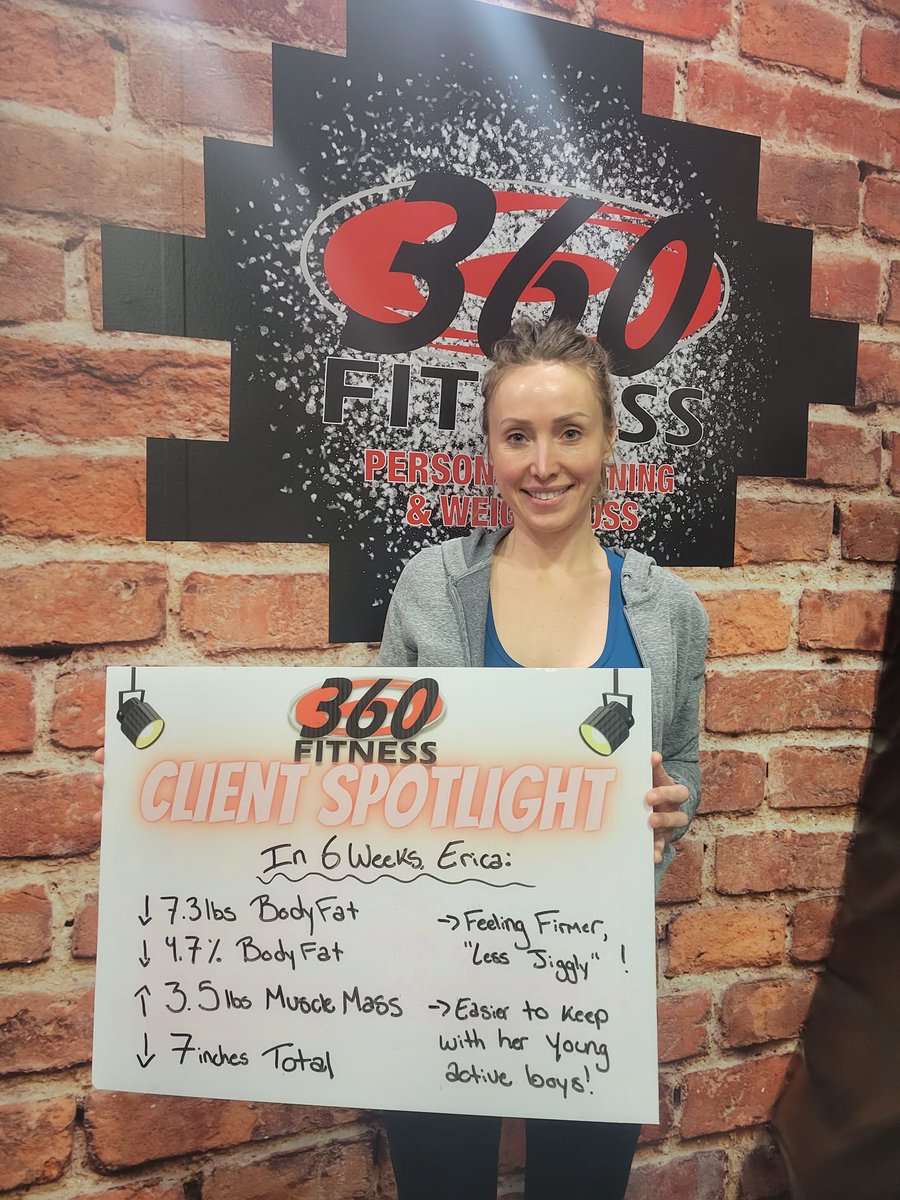 360
FITNESS
PERSON NING
& WEIG OSS
360
FITNESS
CLIENT SPOTLIGHT
In 6 Weeks, Erica:
↓ 7.3 lbs Body Fat
↓ 4.7% Body Fat
↑ 3.5 lbs Muscle Mass
↓ 7 inches Total
→ Feeling Firmer,
"Less Jiggly" !
→ Easier to keep
with her young
active boys!